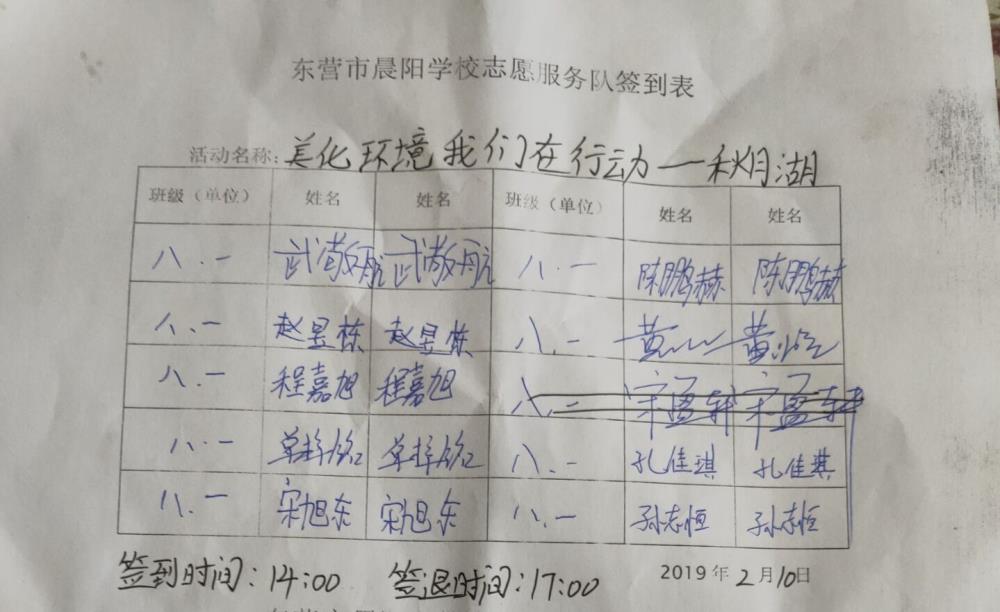 东营市晨阳学校志愿服务队签到表
活动名称：美化环境我们在行动一秋月湖
班级（单位） 姓名 姓名 班级（单位） 姓名 姓名
八.一 武敬航 武敬航 八.一 陈鹏赫 陈鹏赫
八.一 赵昱栋 赵昱栋 八.一 黄 黄
八.一 程嘉旭 程嘉旭 八.一 宋盈轩 宋盈轩
八.一 单梓铭 单梓铭 八.一 孔佳琪 孔佳琪
八.一 宋旭东 宋旭东 八.一 孙志恒 孙志恒
签到时间：14:00 签退时间：17:00 2019年2月10日